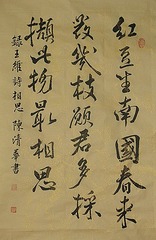 紅豆生南國春來
發幾枝願君多採
擷此物最相思
錄王維詩相思 陳清華書